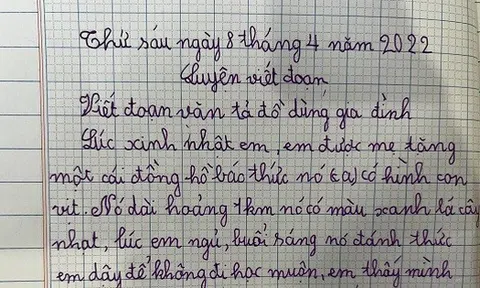 Thứ sáu ngày 8 tháng 4 năm 2022
Luyện viết đoạn
Viết đoạn văn tả đồ dùng gia đình
Lúc xinh nhật em, em được mẹ tăng
một cái đồng hồ báo thức nó (a) có hình con
vit. Nó dài hoảng 1km nó có màu xanh lá cây
nhạt, lúc em ngủ, buổi sáng nó đánh thức
em dây để không đi học muộn, em thấy mình